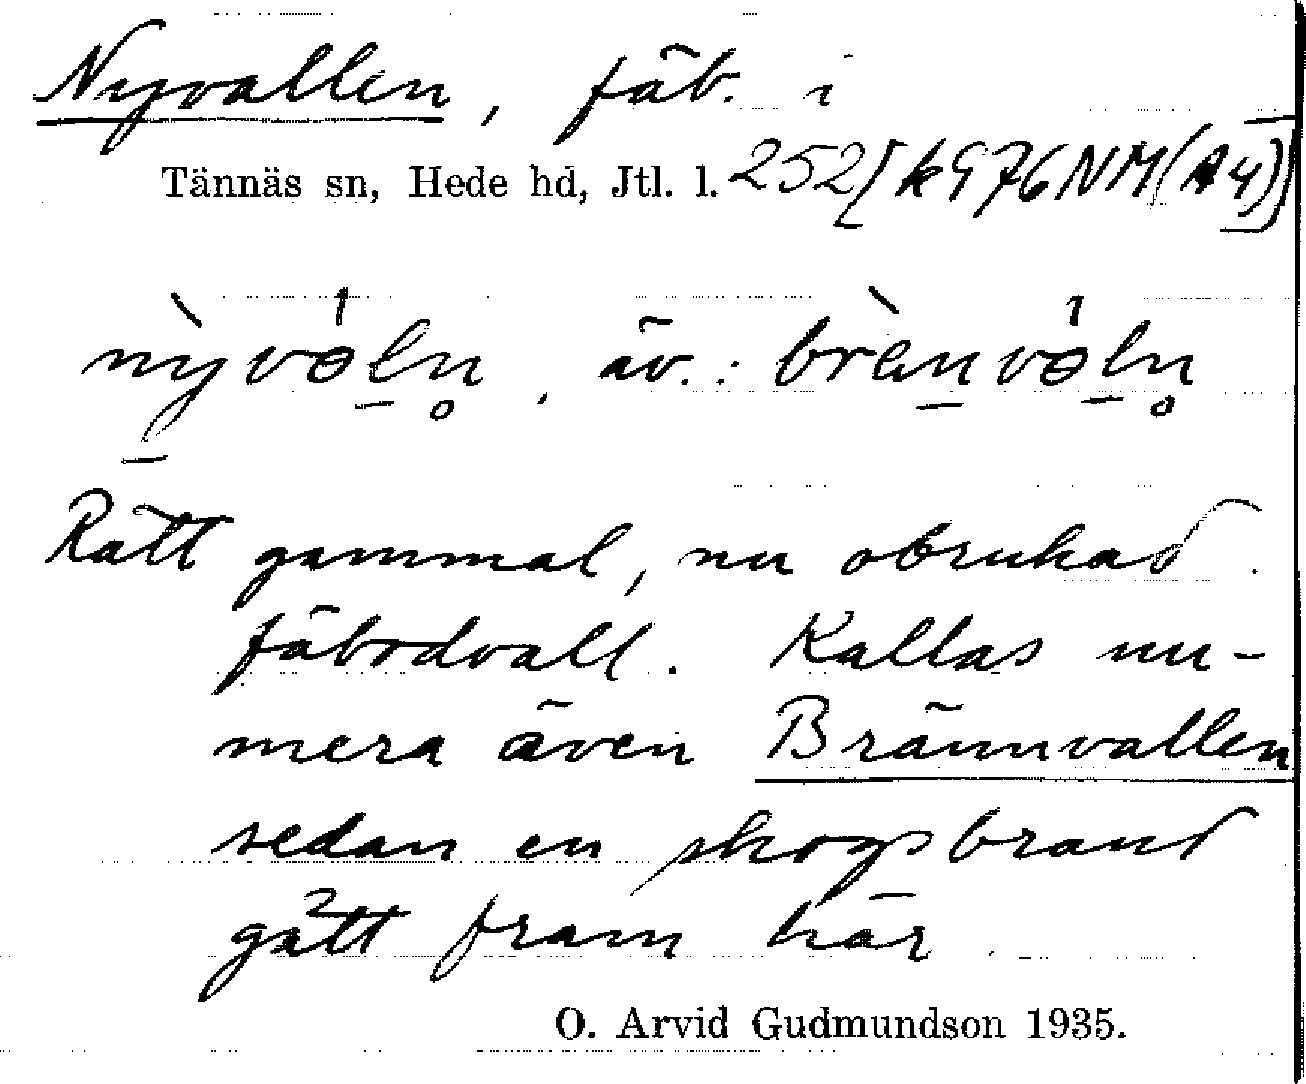 Nyvallen, fäb. i
Tännäs sn, Hede hd, Jtl. l. 252[k976NM(A4)]
nỳvöln̥, äv.: brèn̠völn̥
Rätt gammal, nu obrukad
fäbodvall. Kallas nu-
mera även Brännvallen
sedan en skogsbrand
gått fram här.
O. Arvid Gudmundson 1935.